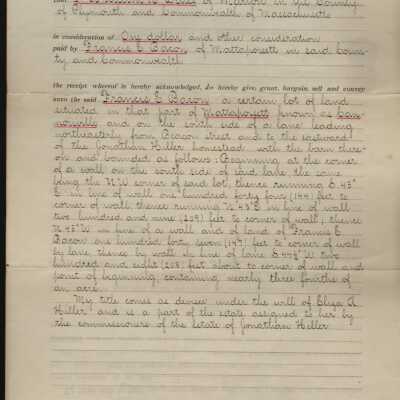 of Marion in the County
of Plymouth and Commonwealth of Massachusetts
in consideration of One dollar and other consideration
paid by Francis E Bacon, of Mattapoisett in said Coun-
ty and Commonwealth
the receipt whereof is hereby acknowledged, do hereby give, grant, bargain, sell and convey
unto the said Francis E. Bacon a certain lot of land
situated in that part of Mattapoisett known as
and on the south side of a lane leading
northeasterly from Beacon street and to the eastward
of the Jonathan Hiller homestead with the barn there-
on and bounded as follows: Beginning at the corner
of a wall on the south side of said lane, the same
being the N.W. corner of said lot, thence running S. 45°
E. in line of wall one hundred forty four (144) feet to
corner of wall thence running N. E in line of wall
two hundred and nine (209) feet to corner of wall; thence
N 43° W in line of a wall and of land of Francis E
Bacon one hundred forty seven (147) feet to corner of wall
by lane, thence by wall in line of lane S. W. two
hundred and eight (208) feet about to corner of wall and
point of beginning, containing nearly three fourths of
an acre.
My title comes as devisee under the will of Eliza A
Hiller and is a part of the estate assigned to her by
the commissioners of the estate of Jonathan Hiller.